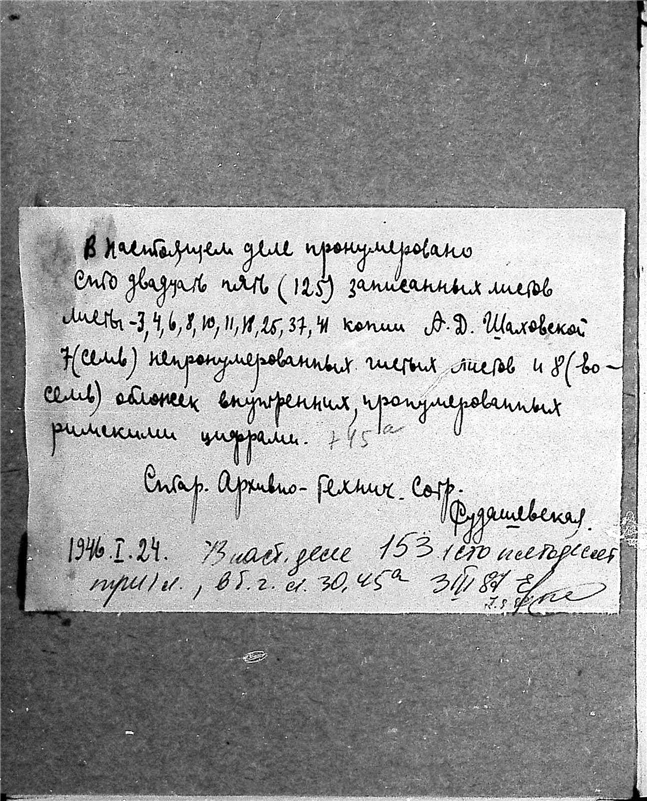 В настоящем деле пронумеровано
сто двадцать пять (125) записанных листов
листы - 3, 4, 6, 8, 10, 11, 18, 25, 37, 41 копии А. Д. Шаховской
7 (семь) непронумерованных чистых листов и 8 (во-
семь) обложек внутренних, пронумерованных
римскими цифрами. + 45а
Стар. Архивно-Технич. Сотр.
1946. I. 24. В наст. деле 153 (сто пятьдесят
три) л., в т. ч. л. 30, 45а 3 III 87